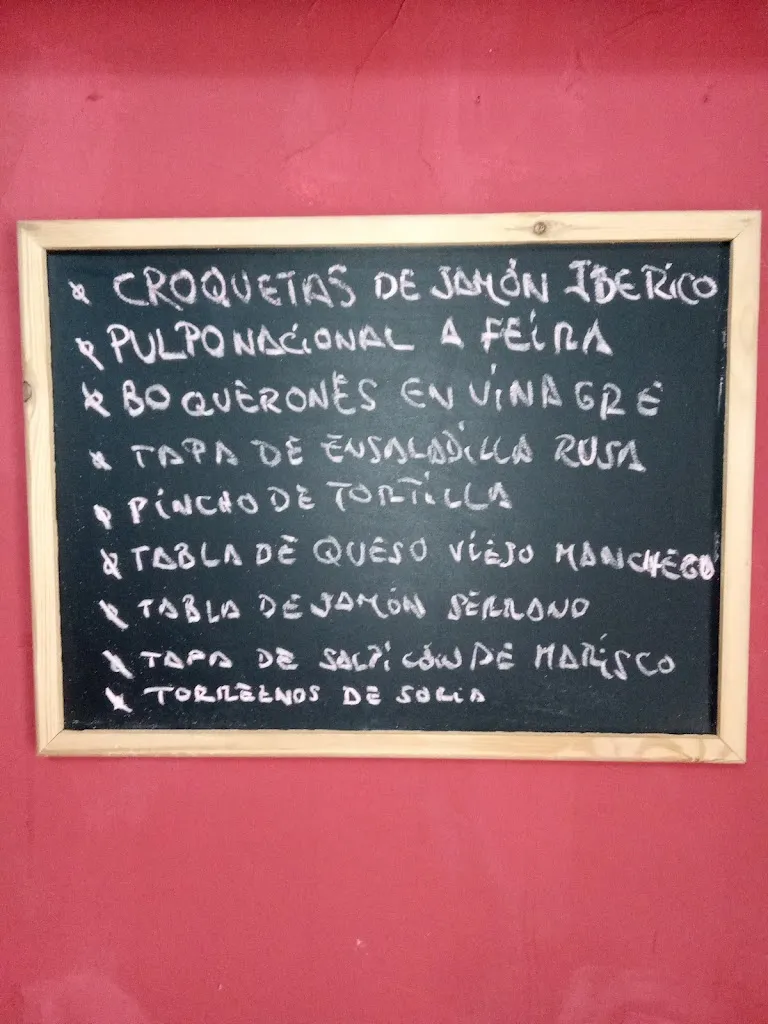 * CROQUETAS DE JAMÓN IBERICO
* PULPO NACIONAL A FEIRA
* BOQUERONES EN VINAGRE
* TAPA DE ENSALADILLA RUSA
* PINCHO DE TORTILLA
* TABLA DE QUESO VIEJO MANCHEGO
* TABLA DE JAMÓN SERRANO
* TAPA DE SALPICÓN DE MARISCO
* TORREZNOS DE SORIA